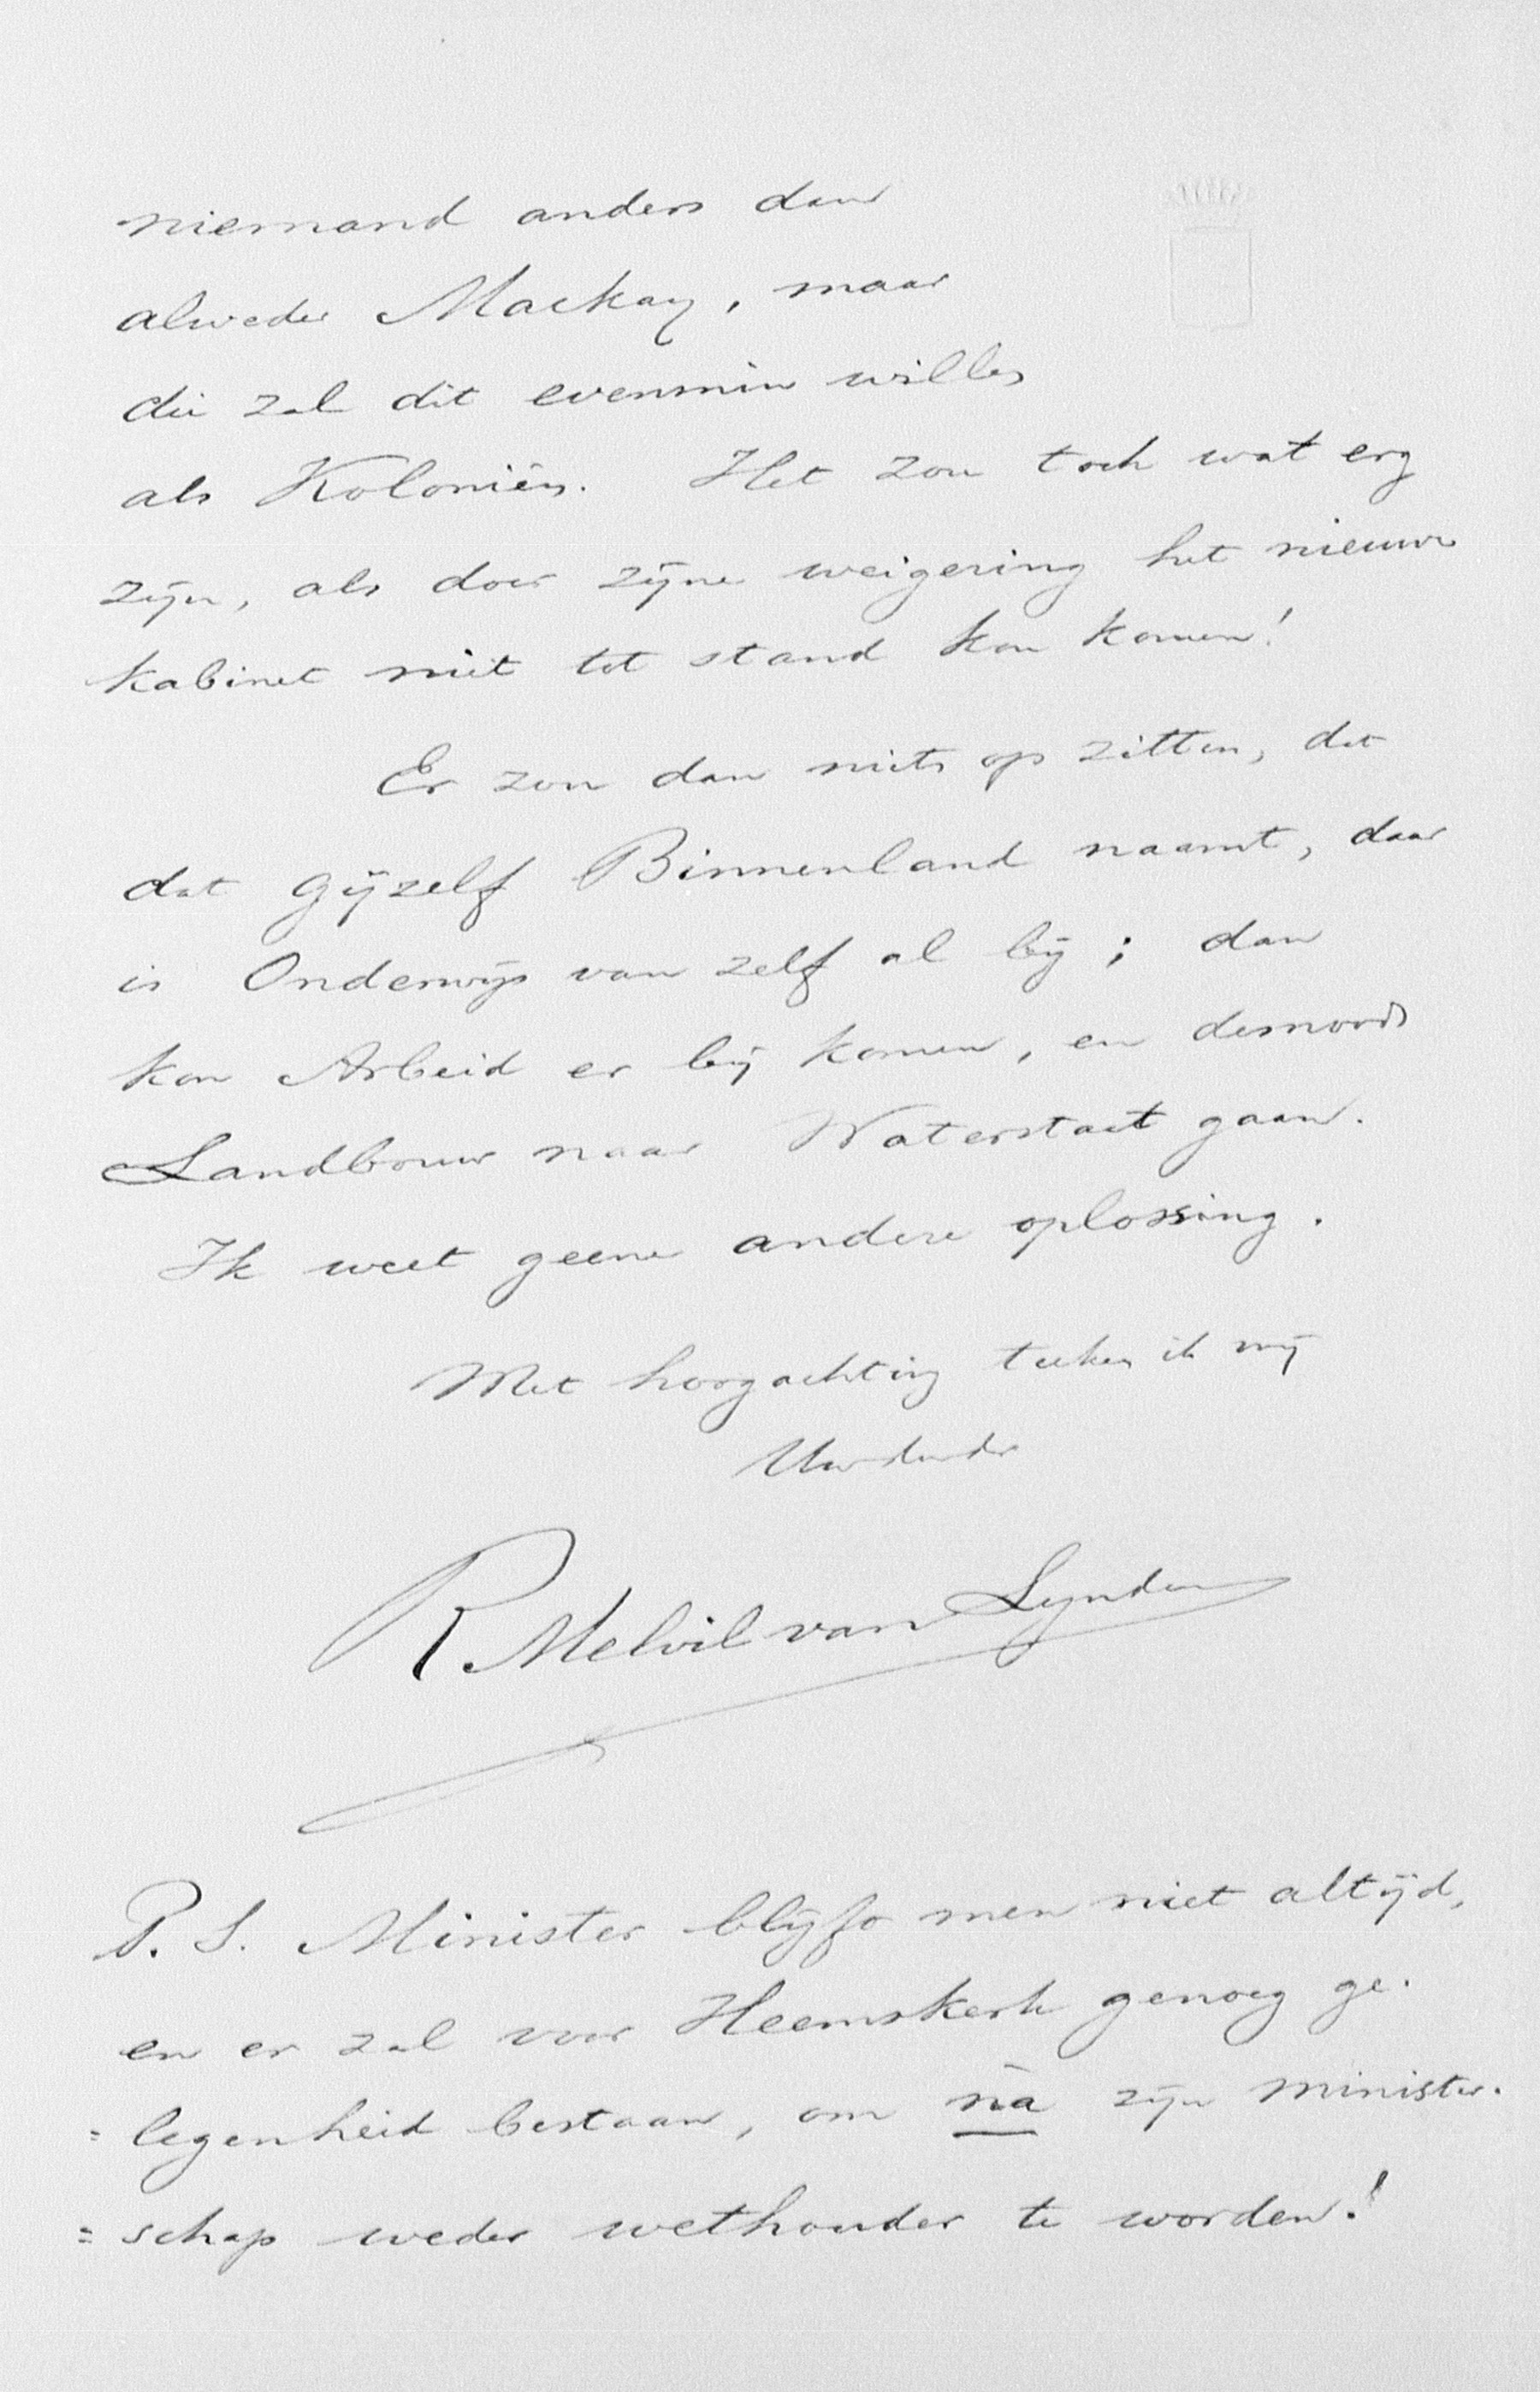 niemand anders dan
alweder Mackay, maar
die zal dit evenmin willen
als Koloniën. Het zou toch wat erg
zijn, als door zijne weigering het nieuwe
kabinet niet tot stand kon komen!
Er zou dan niets op zitten, dat
dat gijzelf Binnenland naamt, daar
is Onderwijs van zelf al bij; dan
kon Arbeid er bij komen, en desnoods
Landbouw naar Waterstaat gaan.
Ik weet geene andere oplossing.
Met hoogachting teeken ik mij
R Melvil van Lynden
P.S. Minister blijft men niet altijd,
en er zal voor Heemskerk genoeg ge-
=legenheid bestaan, om nà zijn minister-
=schap weder wethouder te worden!